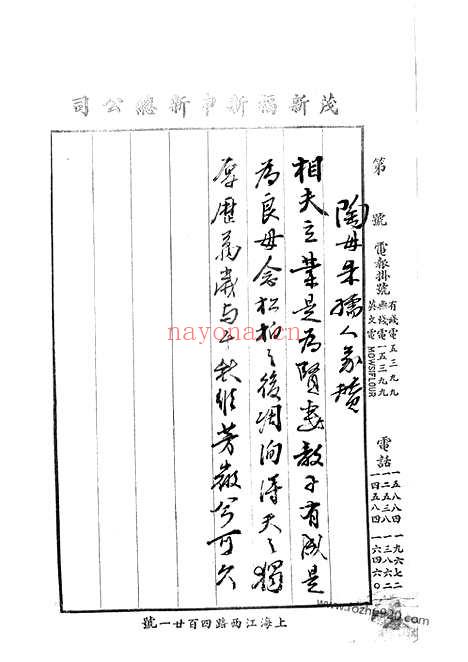 茂新福新申新總公司
第 號
電報掛號
有綫電五三九九
無綫電一五三九九
英文電MOWSIFLOUR
電話
一五八四
一二五三八
一四五八四
一九六七二
一三八六二
一六四六〇
陶母朱孺人象贊
相夫立業是為賢妻教子有成是
為良母念松柏之後凋洵得天之獨
厚歷萬歲與千秋維芳徽兮可久
上海江西路四百廿一號
nayona.cn
www.rozhey930.com